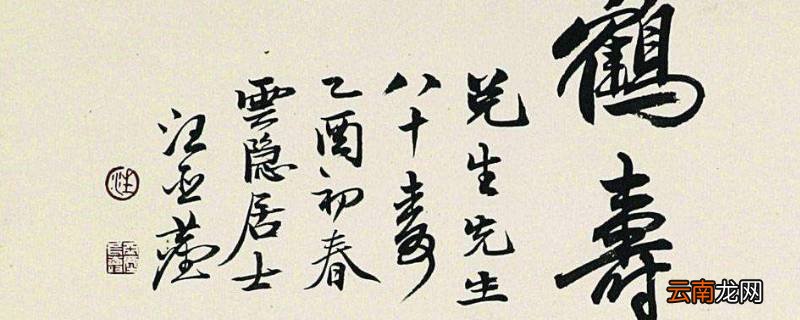 鶴壽
兑生先生
八十壽
乙酉初春
雲隐居士
汪亞塵
汪
云南龙网